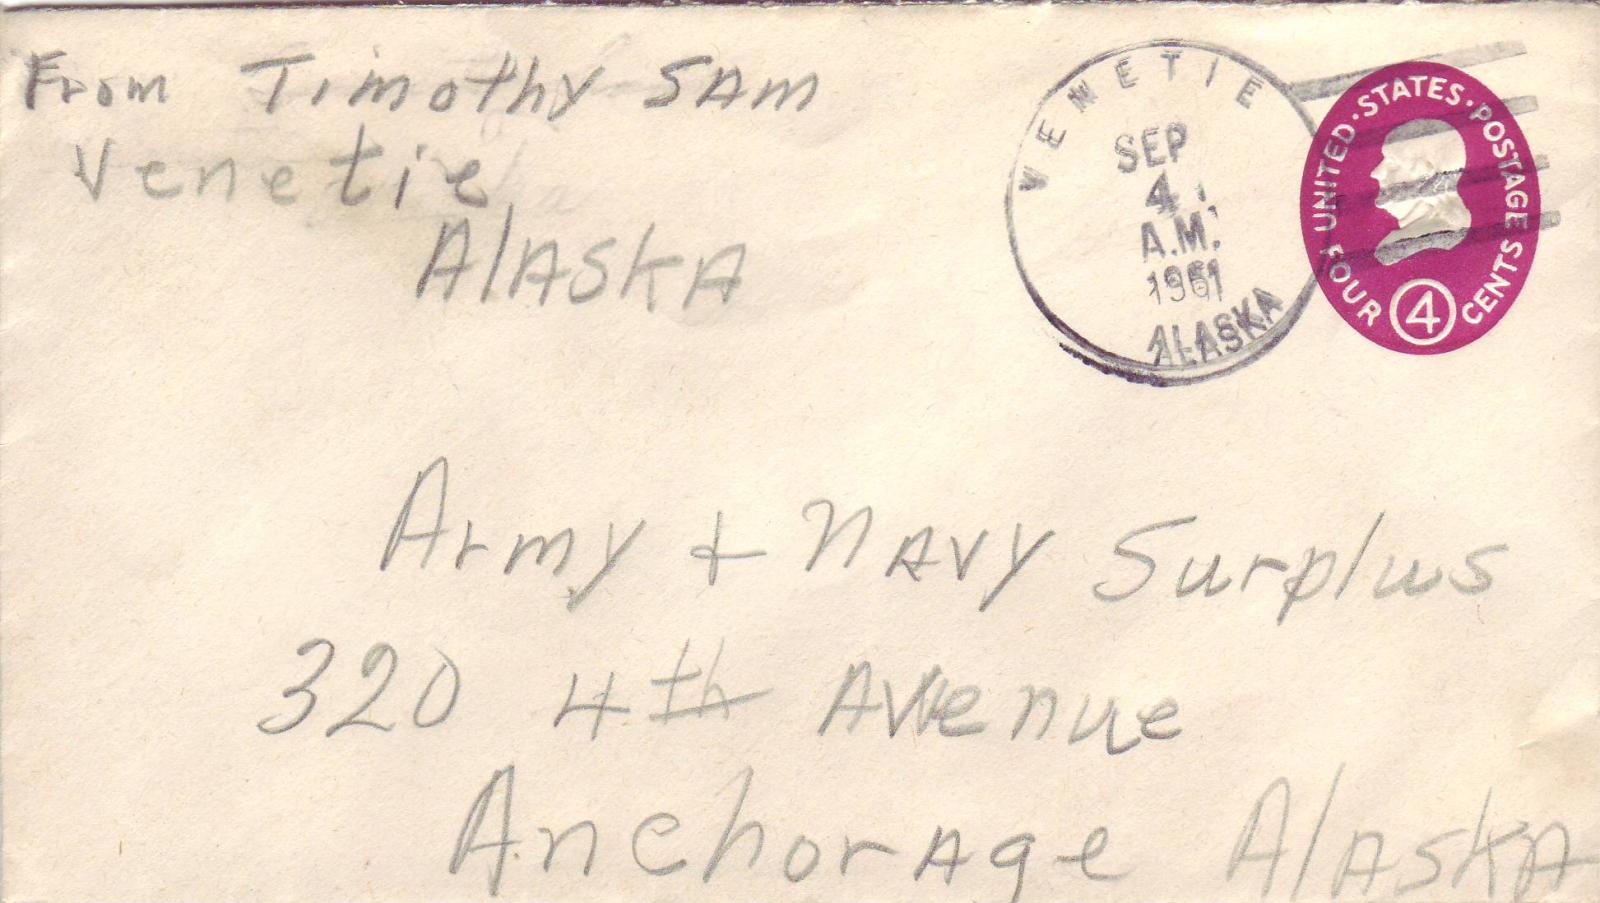 From Timothy SAm
Venetie
AlAskA
VENETIE
SEP
4
A.M.
1961
ALASKA
UNITED·STATES·POSTAGE
FOUR 4 CENTS
Army + NAvy Surplus
320 4th Avenue
AnchorAge AlAskA